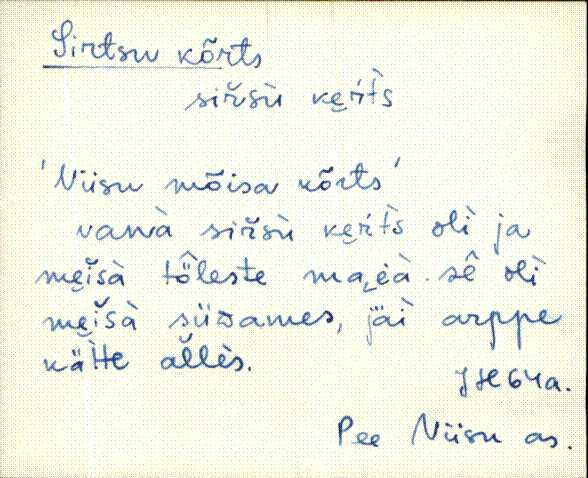 Sirtsu kõrts
siřsù ke̮ŕt̀s
'Niisu mõisa kõrts'
vanà siřsù ke̮ŕt̀s olì ja
me̮i̬šà tȫleste
sê olì
me̮i̬šà süᴅames, jäì arppe
kätte aľlès.
JH 64 a.
Pee Niisu as.